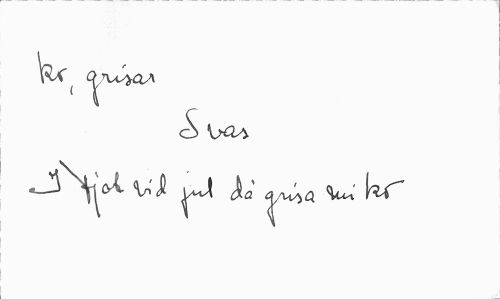 ko, grisar
Svas
I fjol vid jul då grisa mi ko